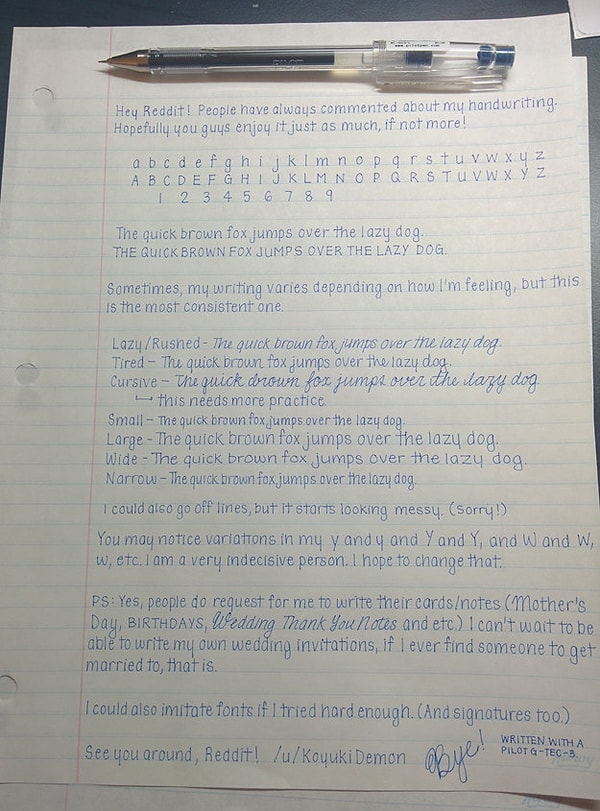 www.pilotpen.com
PILOT
Hey Reddit! People have always commented about my handwriting.
Hopefully you guys enjoy it just as much, if not more!
a b c d e f g h i j k l m n o p q r s t u v w x y z
A B C D E F G H I J K L M N O P Q R S T U V W X Y Z
1 2 3 4 5 6 7 8 9
The quick brown fox jumps over the lazy dog.
THE QUICK BROWN FOX JUMPS OVER THE LAZY DOG.
Sometimes, my writing varies depending on how I'm feeling, but this
is the most consistent one.
Lazy/Rushed - The quick brown fox jumps over the lazy dog.
Tired - The quick brown fox jumps over the lazy dog.
Cursive - The quick brown fox jumps over the lazy dog
↳ this needs more practice.
Small - The quick brown fox jumps over the lazy dog.
Large - The quick brown fox jumps over the lazy dog.
Wide - The quick brown fox jumps over the lazy dog.
Narrow - The quick brown fox jumps over the lazy dog.
I could also go off lines, but it starts looking messy. (Sorry!)
You may notice variations in my y and y and Y and Y, and W and W,
w, etc. I am a very indecisive person. I hope to change that.
PS: Yes, people do request for me to write their cards/notes (Mother's
Day, BIRTHDAYS, Wedding Thank You Notes and etc.) I can't wait to be
able to write my own wedding invitations, if I ever find someone to get
married to, that is.
I could also imitate fonts if I tried hard enough. (And signatures too.)
See you around, Reddit! /u/KoyukiDemon Bye!
WRITTEN WITH A
PILOT G-TEC-3